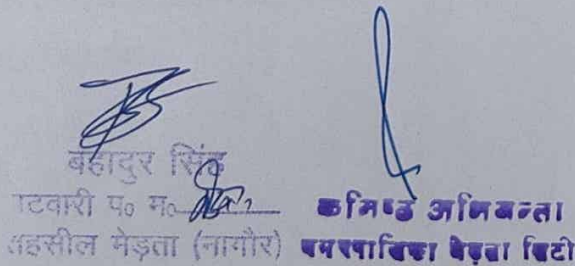 बहादुर सिंह
टवारी प० म०
तहसील मेड़ता (नागौर)
कनिष्ठ अभियन्ता
नगरपालिका मेड़ता सिटी